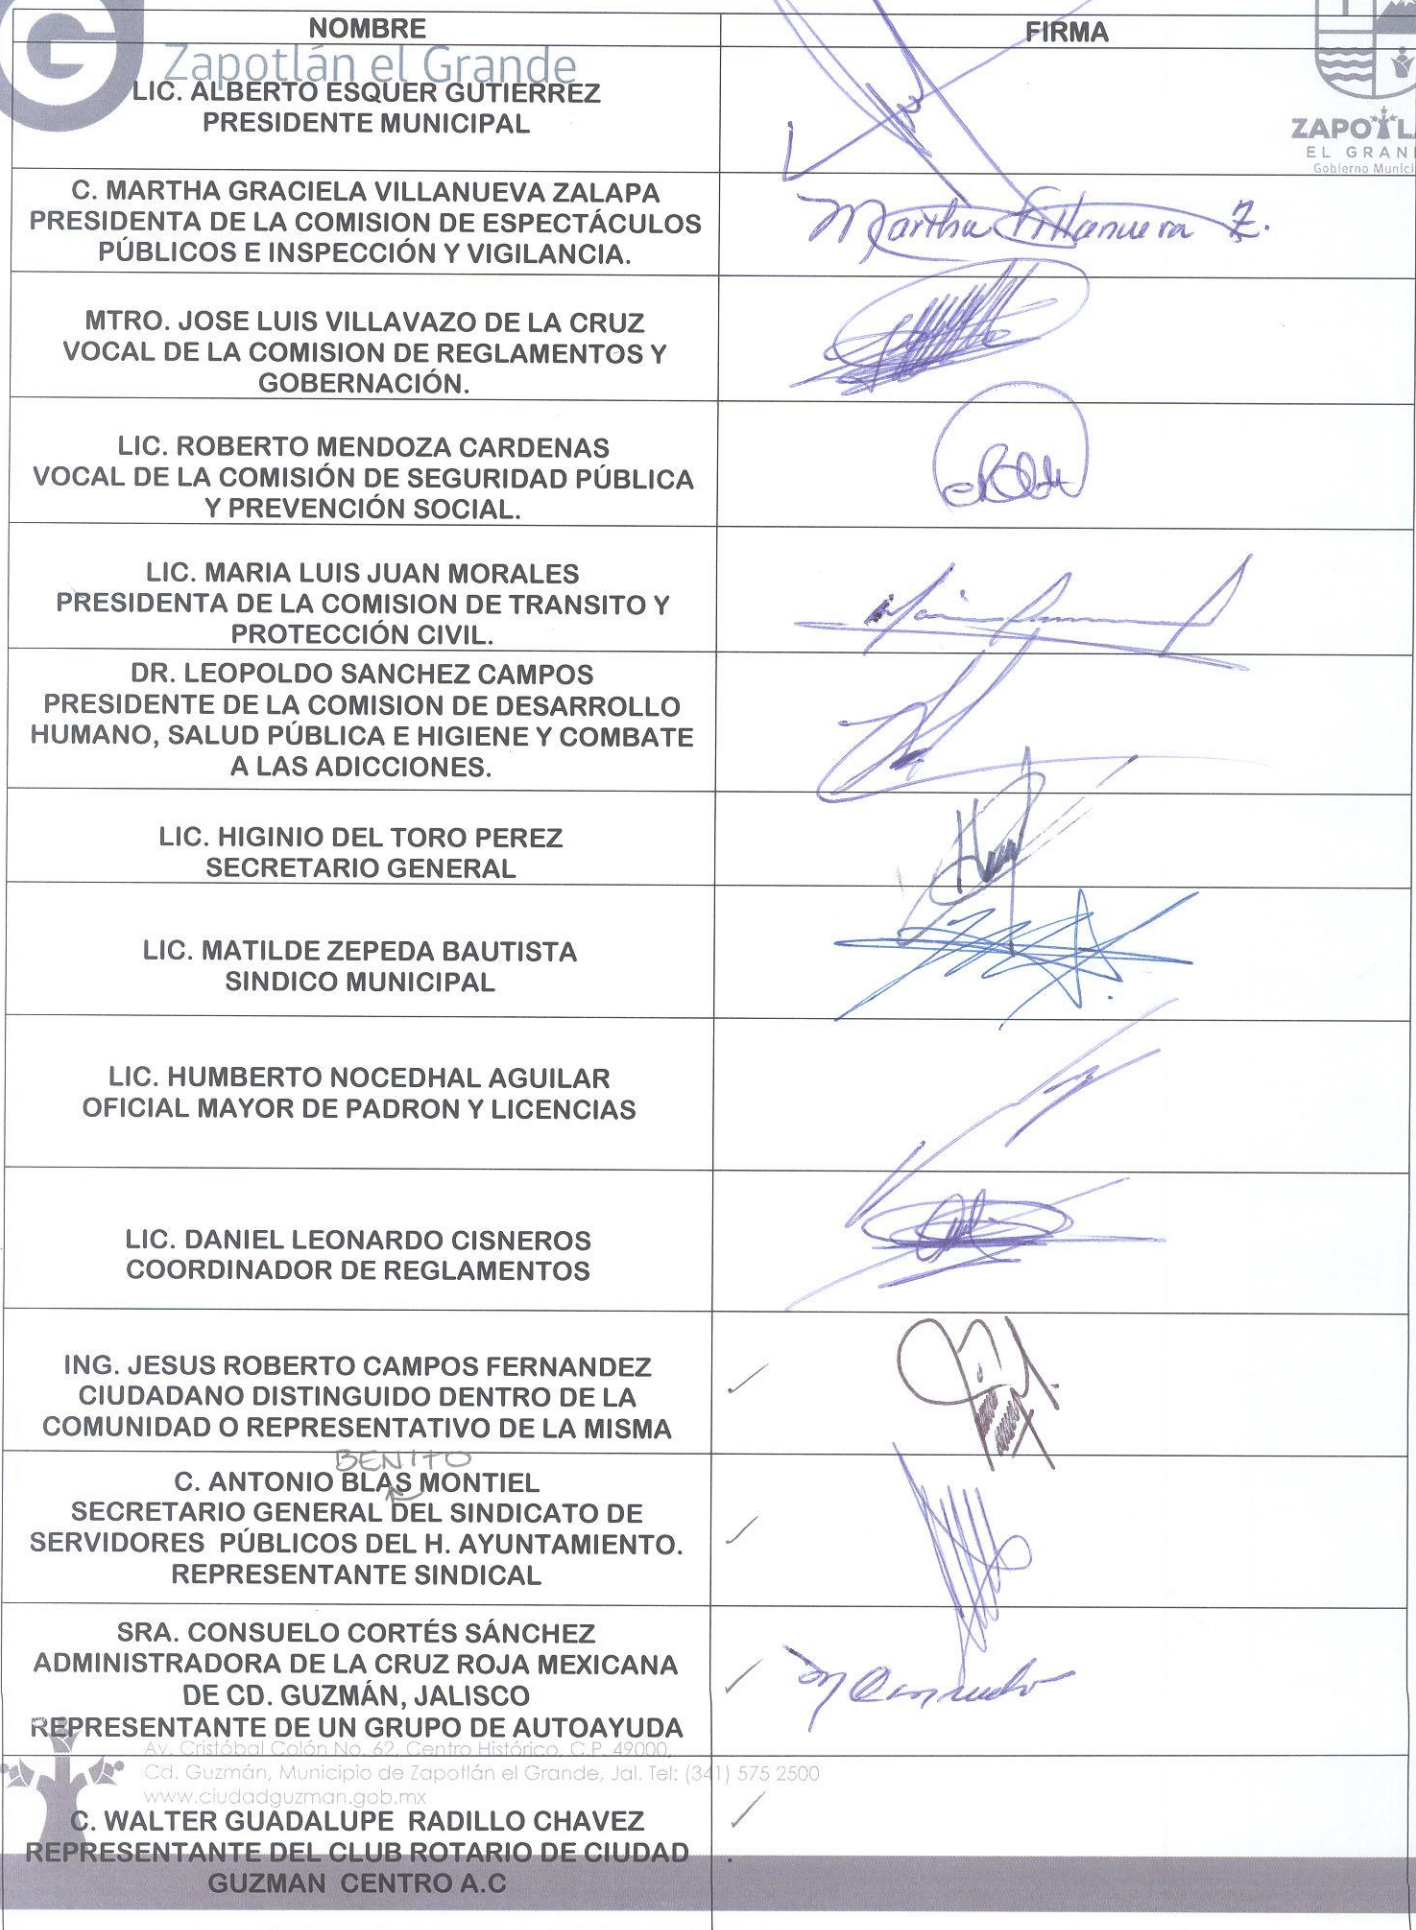 NOMBRE FIRMA
Zapotlán el Grande
LIC. ALBERTO ESQUER GUTIERREZ
PRESIDENTE MUNICIPAL
ZAPOTL
EL GRAN
Gobierno Munici
C. MARTHA GRACIELA VILLANUEVA ZALAPA
PRESIDENTA DE LA COMISION DE ESPECTÁCULOS
PÚBLICOS E INSPECCIÓN Y VIGILANCIA.
Martha Villanueva Z.
MTRO. JOSE LUIS VILLAVAZO DE LA CRUZ
VOCAL DE LA COMISION DE REGLAMENTOS Y
GOBERNACIÓN.
LIC. ROBERTO MENDOZA CARDENAS
VOCAL DE LA COMISIÓN DE SEGURIDAD PÚBLICA
Y PREVENCIÓN SOCIAL.
LIC. MARIA LUIS JUAN MORALES
PRESIDENTA DE LA COMISION DE TRANSITO Y
PROTECCIÓN CIVIL.
DR. LEOPOLDO SANCHEZ CAMPOS
PRESIDENTE DE LA COMISION DE DESARROLLO
HUMANO, SALUD PÚBLICA E HIGIENE Y COMBATE
A LAS ADICCIONES.
LIC. HIGINIO DEL TORO PEREZ
SECRETARIO GENERAL
LIC. MATILDE ZEPEDA BAUTISTA
SINDICO MUNICIPAL
LIC. HUMBERTO NOCEDHAL AGUILAR
OFICIAL MAYOR DE PADRON Y LICENCIAS
LIC. DANIEL LEONARDO CISNEROS
COORDINADOR DE REGLAMENTOS
ING. JESUS ROBERTO CAMPOS FERNANDEZ
CIUDADANO DISTINGUIDO DENTRO DE LA
COMUNIDAD O REPRESENTATIVO DE LA MISMA
BENITO
C. ANTONIO BLAS MONTIEL
SECRETARIO GENERAL DEL SINDICATO DE
SERVIDORES PÚBLICOS DEL H. AYUNTAMIENTO.
REPRESENTANTE SINDICAL
SRA. CONSUELO CORTÉS SÁNCHEZ
ADMINISTRADORA DE LA CRUZ ROJA MEXICANA
DE CD. GUZMÁN, JALISCO
REPRESENTANTE DE UN GRUPO DE AUTOAYUDA
Av. Cristóbal Colón No. 62, Centro Histórico, C.P. 49000,
Cd. Guzmán, Municipio de Zapotlán el Grande, Jal. Tel: (341) 575 2500
www.ciudadguzman.gob.mx
C. WALTER GUADALUPE RADILLO CHAVEZ
REPRESENTANTE DEL CLUB ROTARIO DE CIUDAD
GUZMAN CENTRO A.C